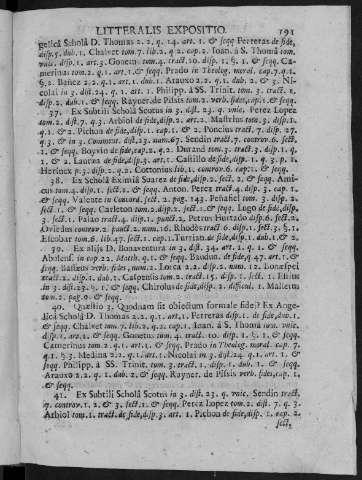 LITTERALIS EXPOSITIO 191
gelicâ Scholâ D. Thomas 2. 2. q. 14. art. 1. & seqq Ferreras de fide,
disp. 5. dub. 1. Chalvet tom. 7. lib. 2. q. 2. cap. 2. Ioan. à S. Thoma tom.
unic. disp. 1. art. 3. Gonetus tom. 4. tract. 10. disp. 1. §. 1. & seqq. Ca-
merinas tom. 2. q. 1. art. 1. & seqq. Prado in Theolog. moral. cap. 7. q. 1.
§. 2. Bañez 2. 2. q. 1. art. 1. dub. 1. Arauxo 2. 2. q. 1. dub. 2. & 3. Ni-
colai in 3. dist. 24. q. 1. art. 1. Philipp. à SS. Trinit. tom. 3. tract. 1.
disp. 2. dub. 1. & seqq. Rayner. de Pisis tom. 2. verb. fides, cap. 1. & seqq.
37. Ex Subtili Scholâ Scotus in 3. dist. 23. q. unic. Perez Lopez
tom. 2. dist. 7. q. 3. Arbiol de fide, disp. 2. art. 2. Mastrius tom. 3. disp. 1.
q. 1. & 2. Pichon de fide, disp. 1. cap. 1. & 2. Poncius tract. 7. disp. 27.
q. 3. & in 3. Comment. dist. 23. num. 67. Sendin tract. 7. controv. 6. sect.
2. & seqq. Boyvin de fide, cap. 2. q. 2. Durand tom. 3. tract. 3. disp. 1. q.
1. & 2. Laurea de fide, disp. 3. art. 1. Castillo de fide, disp. 1. q. 3. p. 1.
Herincx p. 3. disp. 2. q. 2. Cottonius lib. 1. controv. 6. cap. 1. & seqq.
38. Ex Scholâ Eximiâ Suarez de fide, disp. 2. sect. 2. & seqq. Ami-
cus tom. 4. disp. 1. sect. 1. & seqq. Anton. Perez tract. 4. disp. 3. cap. 1.
& seqq. Valente in Concord. sect. 2. pag. 143. Peñafiel tom. 3. disp. 2.
sect. 1. & seqq. Carleton tom. 2. disp. 2. sect. 1. & seqq. Lugo de fide, disp.
3. sect. 1. Palao tract. 4. disp. 1. punct. 2. Petrus Hurtado disp. 6. sect. 2.
Oviedus controv. 2. punct. 2. num. 16. Rhodes tract. 6. disp. 1. sect. 3. §. 1.
Escobar tom. 6. lib. 47. sect. 1. cap. 1. Turrian. de fide, disp. 1. dub. 1. & 2.
39. Ex alijs D. Bonaventura in 3. dist. 24. art. 1. q. 1. & seqq.
Abulens. in cap. 22. Matth. q. 1. & seqq. Baudun. de fide, q. 47. art. 1. &
seqq. Bassæus verb. fides, num. 2. Lorca 2. 2. disp. 2. num. 12. Bonæspei
tract. 2. disp. 1. dub. 1. Caspensis tom. 2. tract. 15. disp. 1. sect. 1. Estius
in 3. dist. 23. §. 1. & seqq. Chirolus de fide, disp. 2. difficul. 1. Maslerus
tom. 2. pag. 6. & seqq.
40. Quæstio 3. Quodnam sit obiectum formale fidei? Ex Ange-
licâ Scholâ D. Thomas 2. 2. q. 1. art. 1. Ferreras disp. 1. de fide, dub. 1.
& seqq. Chalvet tom. 7. lib. 2. q. 2. cap. 1. Ioan. à S. Thom. tom. unic.
disp. 1. art. 1. & seqq. Gonetus tom. 4. tract. 10. disp. 1. §. 1. & seqq.
Camerinas tom. 2. q. 1. art. 1. & seqq. Prado in Theolog. moral. cap. 7.
q. 1. §. 3. Medina 2. 2. q. 1. art. 1. Nicolai in 3. dist. 24. q. 1. art. 1. &
seqq. Philipp. à SS. Trinit. tom. 3. tract. 1. disp. 2. dub. 1. & seqq.
Arauxo 2. 2. q. 1. dub. 2. & seqq. Rayner. de Pisis verb. fides, cap. 1.
& seqq.
41. Ex Subtili Scholâ Scotus in 3. dist. 23. q. unic. Sendin tract.
7. controv. 1. 2. & 3. sect. 1. & seqq. Perez Lopez tom. 2. dist. 7. q. 3.
Arbiol tom. 1. tract. de fide, disp. 3. art. 1. Pichon de fide, disp. 1. cap. 2.
sect.